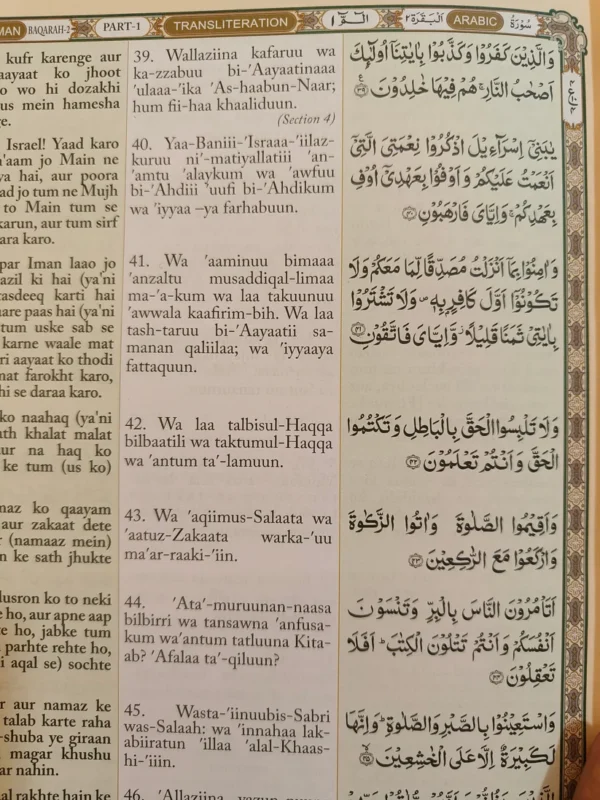 MAN BAQARAH-2 PART-1 TRANSLITERATION الٓمّٓ ١ اَلْبَقَرَة ٢ ARABIC سُوْرَةُ
kufr karenge aur
aayaat ko jhoot
o wo hi dozakhi
us mein hamesha
e.
Israel! Yaad karo
'aam jo Main ne
ya hai, aur poora
ad jo tum ne Mujh
to Main tum se
karun, aur tum sirf
ara karo.
par Iman laao jo
azil ki hai (ya'ni
asdeeq karti hai
aare paas hai (ya'ni
tum uske sab se
karne waale mat
ri aayaat ko thodi
mat farokht karo,
hi se daraa karo.
ko naahaq (ya'ni
ath khalat malat
ur na haq ko
ke tum (us ko)
maz ko qaayam
aur zakaat dete
r (namaaz mein)
n ke sath jhukte
dusron ko to neki
e ho, aur apne aap
te ho, jabke tum
parhte rehte ho,
i aqal se) sochte
r aur namaz ke
talab karte raha
-shuba ye giraan
magar khushu
ar nahin.
al rakhte hain ke
39. Wallaziina kafaruu wa
ka-zzabuu bi-'Aayaatinaaa
'ulaaa-'ika 'As-haabun-Naar;
hum fii-haa khaaliduun.
(Section 4)
40. Yaa-Baniii-'Israaa-'iilaz-
kuruu ni'-matiyallatiii 'an-
'amtu 'alaykum wa 'awfuu
bi-'Ahdiii 'uufi bi-'Ahdikum
wa 'iyyaa –ya farhabuun.
41. Wa 'aaminuu bimaaa
'anzaltu musaddiqal-limaa
ma-'a-kum wa laa takuunuu
'awwala kaafirim-bih. Wa laa
tash-taruu bi-'Aayaatii sa-
manan qaliilaa; wa 'iyyaaya
fattaquun.
42. Wa laa talbisul-Haqqa
bilbaatili wa taktumul-Haqqa
wa 'antum ta'-lamuun.
43. Wa 'aqiimus-Salaata wa
'aatuz-Zakaata warka-'uu
ma'ar-raaki-'iin.
44. 'Ata'-muruunan-naasa
bilbirri wa tansawna 'anfusa-
kum wa'antum tatluuna Kitaa-
ab? 'Afalaa ta'-qiluun?
45. Wasta-'iinuubis-Sabri
was-Salaah: wa 'innahaa lak-
abiiratun 'illaa 'alal-Khaas-
hi-'iiin.
46. 'Allaziina
وَالَّذِيْنَ كَفَرُوْا وَكَذَّبُوْا بِاٰيٰتِنَاۤ اُولٰٓئِكَ
اَصْحٰبُ النَّارِۚ هُمْ فِيْهَا خٰلِدُوْنَ ٣٩
يٰبَنِيْۤ اِسْرَآءِيْلَ اذْكُرُوْا نِعْمَتِيَ الَّتِيْۤ
اَنْعَمْتُ عَلَيْكُمْ وَاَوْفُوْا بِعَهْدِيْۤ اُوْفِ
بِعَهْدِكُمْۚ وَاِيَّايَ فَارْهَبُوْنِ ٤٠
وَاٰمِنُوْا بِمَاۤ اَنْزَلْتُ مُصَدِّقًا لِّمَا مَعَكُمْ وَلَا
تَكُوْنُوْۤا اَوَّلَ كَافِرٍۭ بِهٖ۪ وَلَا تَشْتَرُوْا
بِاٰيٰتِيْ ثَمَنًا قَلِيْلًا٘ وَّاِيَّايَ فَاتَّقُوْنِ ٤١
وَلَا تَلْبِسُوا الْحَقَّ بِالْبَاطِلِ وَتَكْتُمُوا
الْحَقَّ وَاَنْتُمْ تَعْلَمُوْنَ ٤٢
وَاَقِيْمُوا الصَّلٰوةَ وَاٰتُوا الزَّكٰوةَ
وَارْكَعُوْا مَعَ الرّٰكِعِيْنَ ٤٣
اَتَاْمُرُوْنَ النَّاسَ بِالْبِرِّ وَتَنْسَوْنَ
اَنْفُسَكُمْ وَاَنْتُمْ تَتْلُوْنَ الْكِتٰبَؕ اَفَلَا
تَعْقِلُوْنَ ٤٤
وَاسْتَعِيْنُوْا بِالصَّبْرِ وَالصَّلٰوةِؕ وَاِنَّهَا
لَكَبِيْرَةٌ اِلَّا عَلَى الْخٰشِعِيْنَ ٤٥